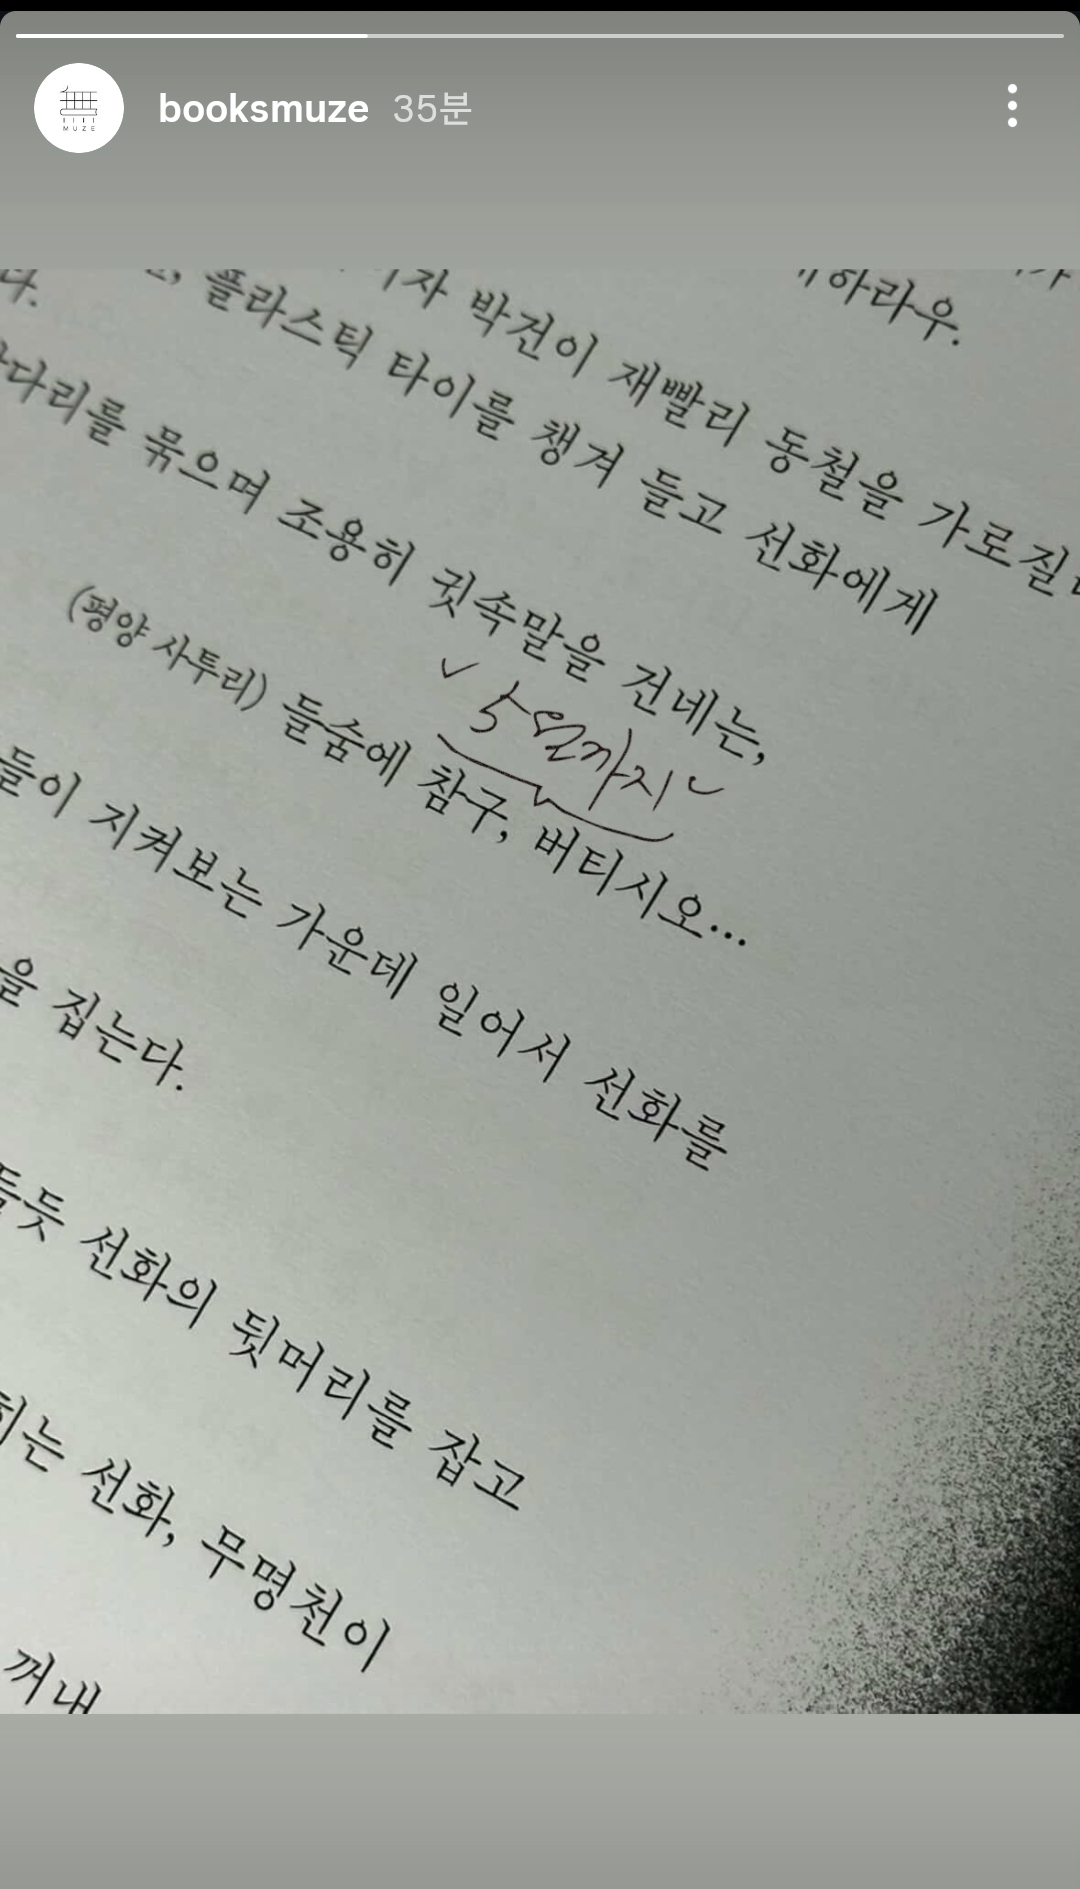 booksmuze 35분
MUZE
하라우.
다.
박건이 재빨리 동철을 가로질
플라스틱 타이를 챙겨 들고 선화에게
다리를 묶으며 조용히 귓속말을 건네는,
5열까지
(평양 사투리) 들숨에 참구, 버티시오...
들이 지켜보는 가운데 일어서 선화를
을 집는다.
듬듯 선화의 뒷머리를 잡고
는 선화, 무명천이
꺼내